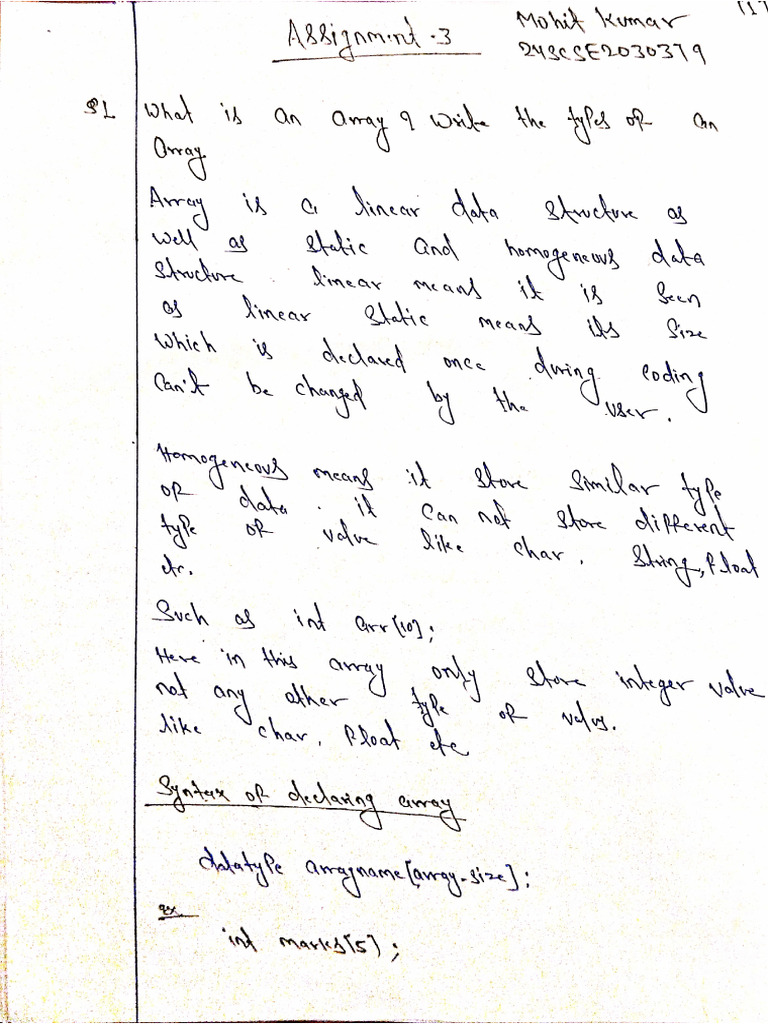 (1)
Assignment.3
Mohit Kumar
24SCSE2030379
What is an array ? Write the types of an
Array.
Array is a linear data structure as
well as static and homogeneous data
structure. linear means it is seen
as linear static means its size
which is declared once during coding
can't be changed by the user.
Homogeneous means it store similar type
of data. it can not store different
type of value like char, String, float
etc.
Such as int arr[10];
Here in this array only store integer value
not any other type of value.
like char, float etc
Syntax of declaring array
datatype arrayname[array-size];
ex.
int marks[5];